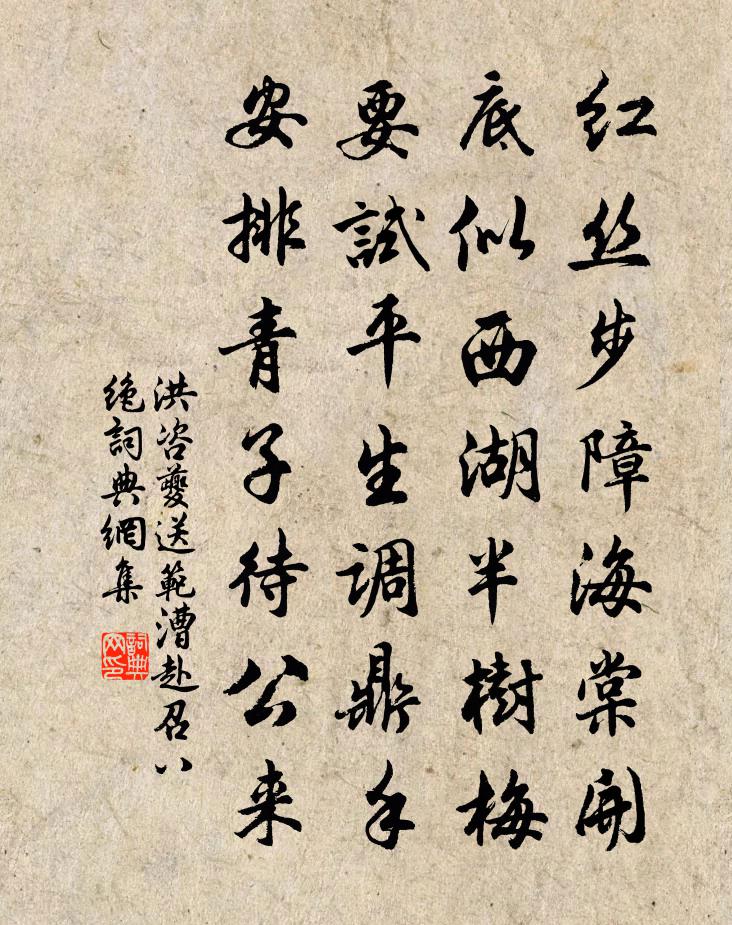 红丝步障海棠开
底似西湖半樹梅
要試平生调鼎手
安排青子待公来
洪咨夔送範漕赴召八
绝詞典網集
詞典
网印